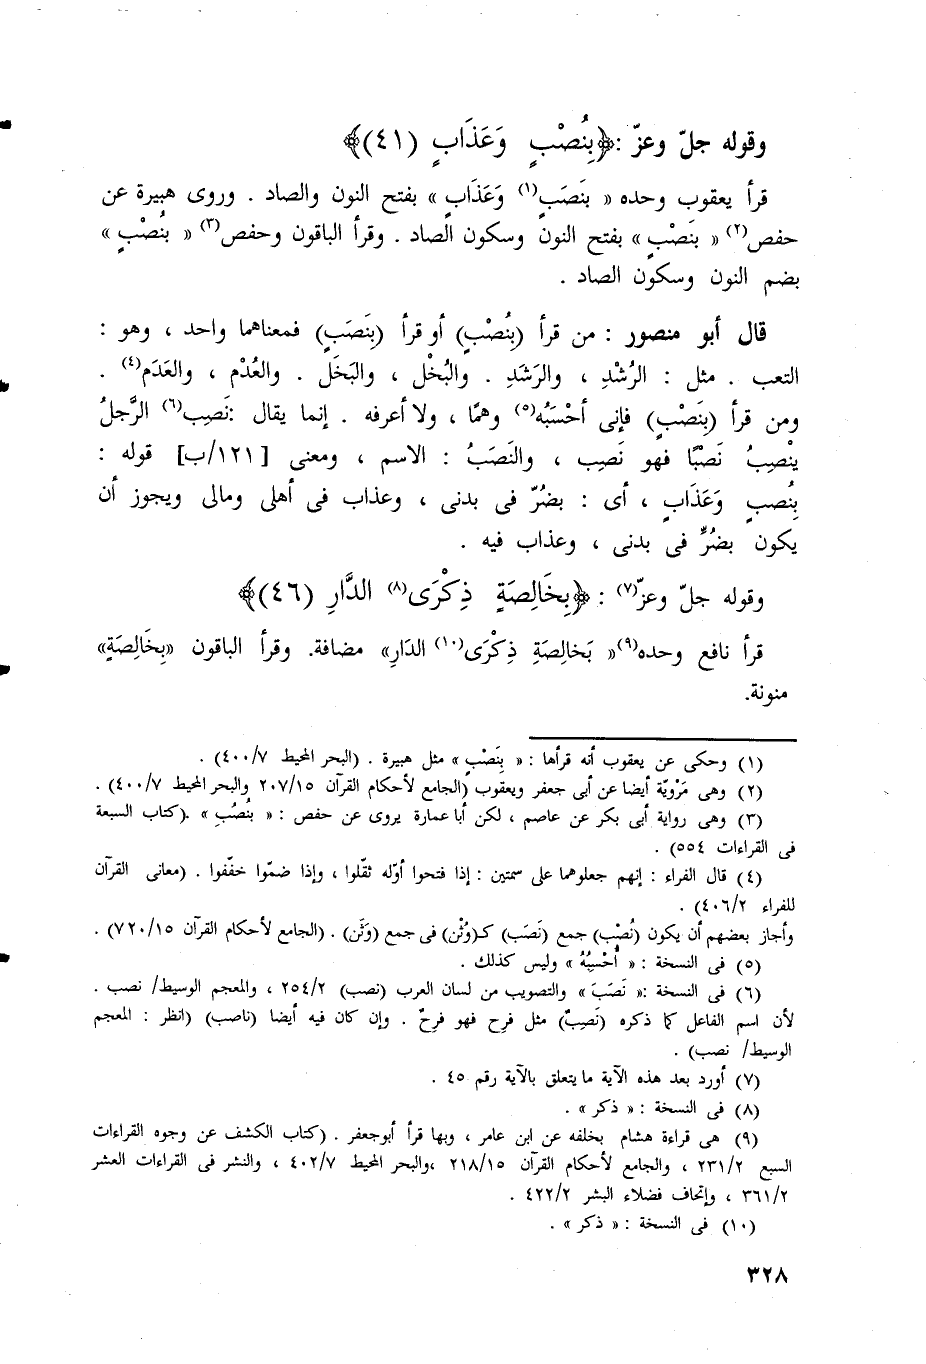 وقوله جلّ وعزّ : ﴿بِنُصْبٍ وَعَذَابٍ (٤١)﴾
قرأ يعقوب وحده « بنَصَبٍ(١) وَعَذَابٍ » بفتح النون والصاد . وروى هبيرة عن
حفص(٢) « بنَصْبٍ » بفتح النون وسكون الصاد . وقرأ الباقون وحفص(٣) « بنُصْبٍ »
بضم النون وسكون الصاد .
قال أبو منصور : من قرأ (بِنُصْبٍ) أو قرأ (بِنَصَبٍ) فمعناهما واحد ، وهو :
التعب . مثل : الرُشْدِ ، والرَشَدِ . والبُخْل ، والبَخَل . والعُدْم ، والعَدَم(٤) .
ومن قرأ (بِنَصْبٍ) فإنى أحْسَبُه(٥) وهمًا ، ولا أعرفه . إنما يقال :نَصِب(٦) الرَّجلُ
ينْصِبُ نَصَبًا فهو نَصِب ، والنَصَبُ : الاسم ، ومعنى [١٢١/ب] قوله :
بِنُصبٍ وَعَذَابٍ ، أى : بضُرّ فى بدنى ، وعذاب فى أهلى ومالى ويجوز أن
يكون بضُرٍّ فى بدنى ، وعذاب فيه .
وقوله جلّ وعزّ(٧) : ﴿بِخَالِصَةٍ ذِكْرَى(٨) الدَّارِ (٤٦)﴾
قرأ نافع وحده(٩)« بَخالِصَةِ ذِكْرَى(١٠) الدَارِ» مضافة. وقرأ الباقون «بِخَالِصَةٍ»
منونة.
(١) وحكى عن يعقوب أنه قرأها : « بِنَصْبٍ » مثل هبيرة . (البحر المحيط ٤٠٠/٧) .
(٢) وهى مَرْوِيّة أيضا عن أبى جعفر ويعقوب (الجامع لأحكام القرآن ٢٠٧/١٥ والبحر المحيط ٤٠٠/٧) .
(٣) وهى رواية أبى بكر عن عاصم ، لكن أبا عمارة يروى عن حفص : « بُنُصُبٍ » .(كتاب السبعة
فى القراءات ٥٥٤) .
(٤) قال الفراء : إنهم جعلوهما على سمتين : إذا فتحوا أوّله ثقّلوا ، وإذا ضمّوا خفّفوا . (معانى القرآن
للفراء ٤٠٦/٢) .
وأجاز بعضهم أن يكون (نُصْبٍ) جمع (نَصَب) كـ(وُثْن) فى جمع (وَثَن) . (الجامع لأحكام القرآن ٧٢٠/١٥) .
(٥) فى النسخة : « أُحْسِبُهُ » وليس كذلك .
(٦) فى النسخة :« نَصَبَ » والتصويب من لسان العرب (نصب) ٢٥٤/٢ ، والمعجم الوسيط/ نصب .
لأن اسم الفاعل كما ذكره (نَصِبٌ) مثل فرِح فهو فرِحٌ . وإن كان فيه أيضا (ناصب) (انظر : المعجم
الوسيط/ نصب) .
(٧) أورد بعد هذه الآية ما يتعلق بالآية رقم ٤٥ .
(٨) فى النسخة : « ذكر » .
(٩) هى قراءة هشام بخلفه عن ابن عامر ، وبها قرأ أبوجعفر . (كتاب الكشف عن وجوه القراءات
السبع ٢٣١/٢ ، والجامع لأحكام القرآن ٢١٨/١٥ ،والبحر المحيط ٤٠٢/٧ ، والنشر فى القراءات العشر
٣٦١/٢ ، وإتحاف فضلاء البشر ٤٢٢/٢ .
(١٠) فى النسخة : « ذكر » .
٣٢٨